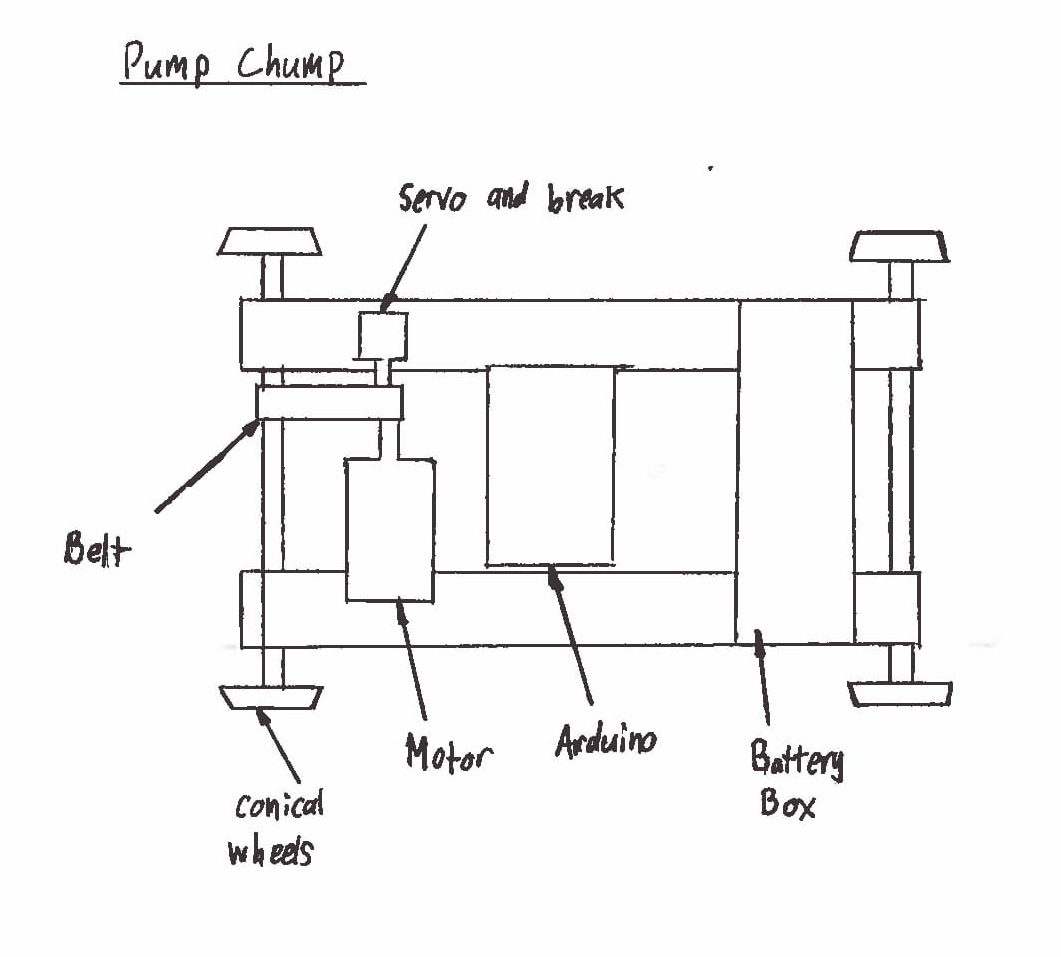 Pump Chump
Servo and break
Belt
Motor
Arduino
Battery
Box
conical
wheels